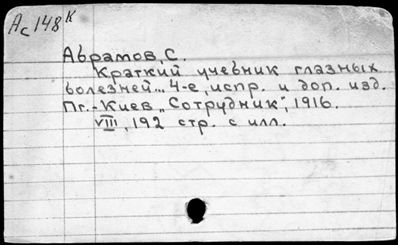 Ас 148 к
Абрамов, С.
Краткий учебник глазных
болезней... 4-е, испр. и доп. изд.
Пг.-Киев „Сотрудник", 1916.
VIII, 192 стр. с илл.